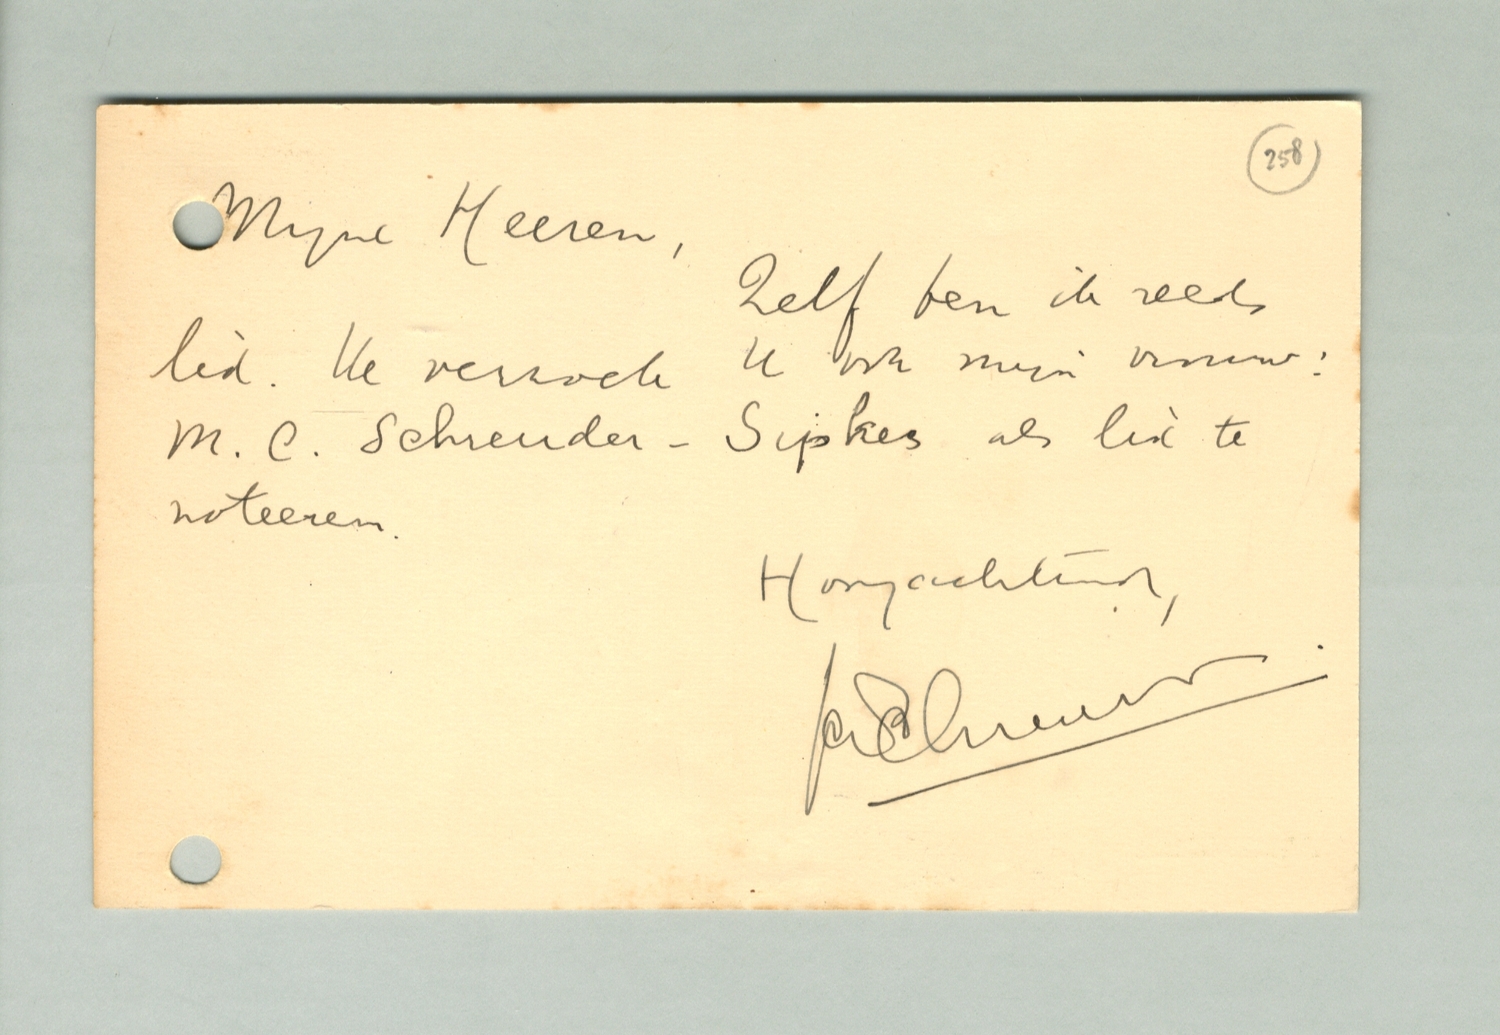 258
Mijne Heeren,
Zelf ben ik reeds
lid. Ik verzoek U ook mijn vrouw:
M. C. Schreuder - Sipkes als lid te
noteeren.
Hoogachtend,
Schreuder